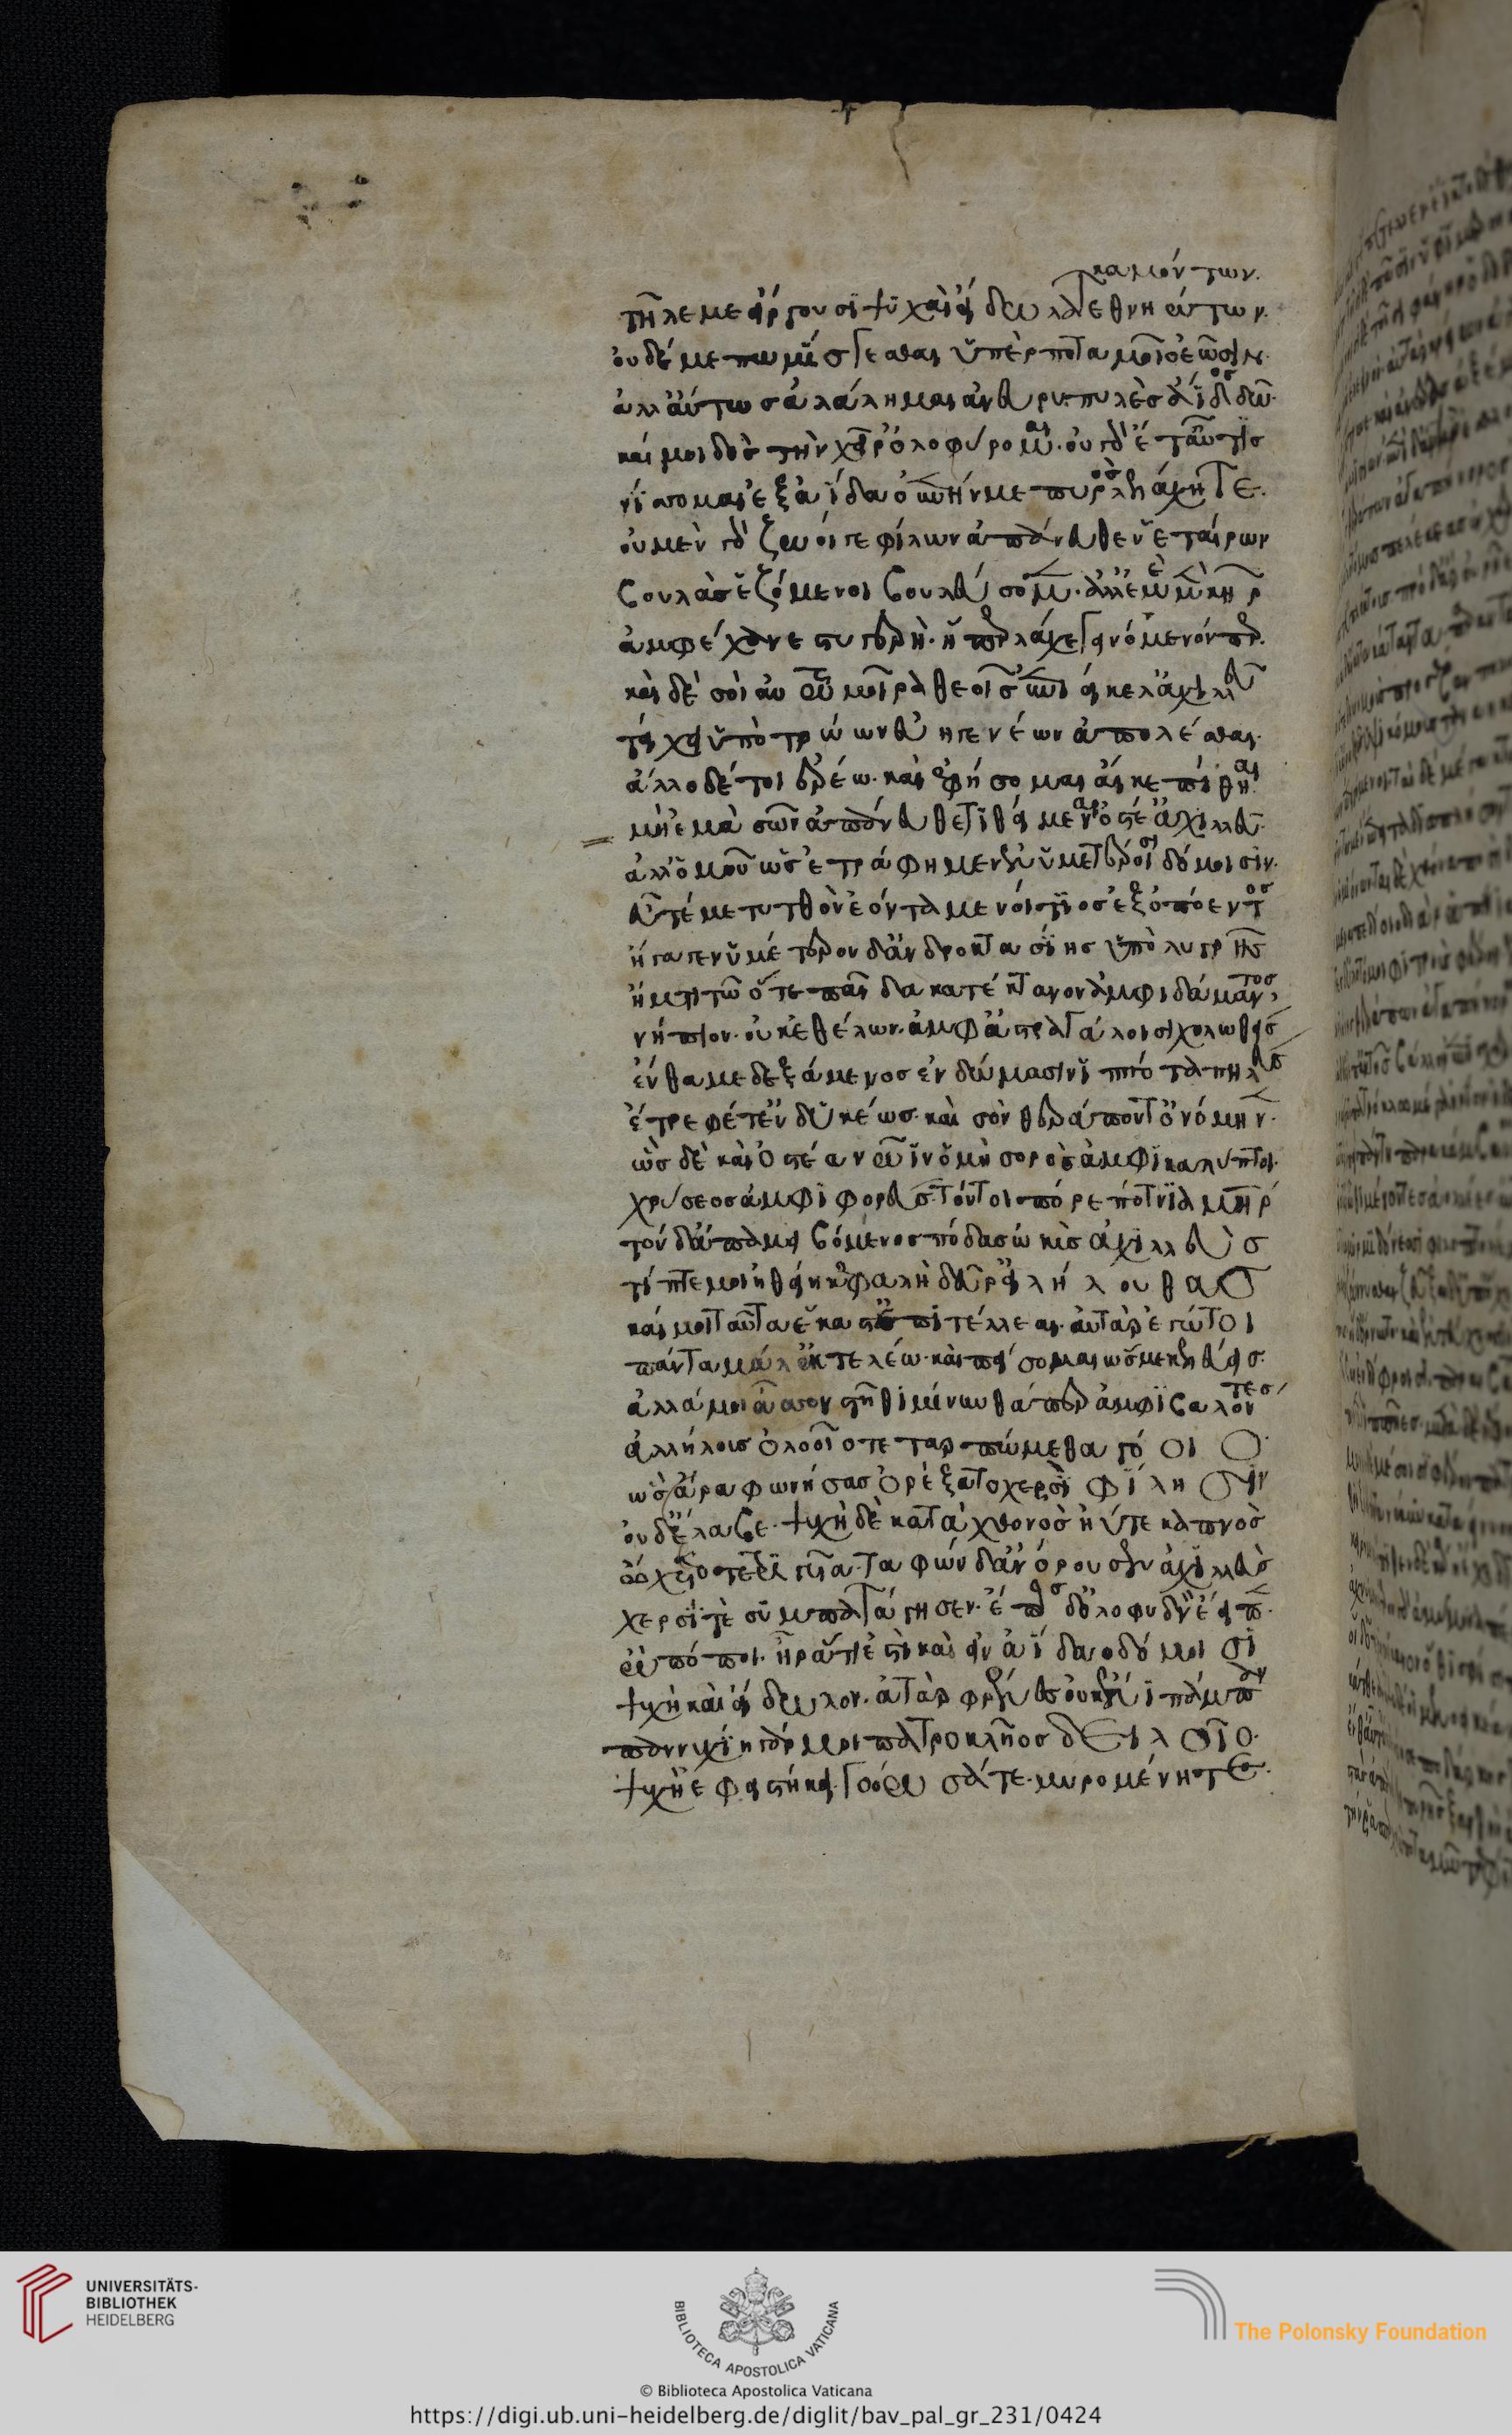 καμόντων.
τῆλε με εἴργουσι ψυχαὶ εἴδωλα τεθνηώτων.
οὐδέ με πω μίσγεσθαι ὑπὲρ ποταμοῖο ἐῶσιν.
ἀλλ' αὔτως ἀλάλημαι ἀν' εὐρυπυλὲς ἄϊδος δῶ.
καί μοι δὸς τὴν χεῖρ' ὀλοφύρομαι. οὐ γὰρ ἔτ' αὖτις
νίσομαι ἐξ ἀΐδαο ἐπήν με πυρὸς λελάχητε.
οὐ μὲν γὰρ ζωοί γε φίλων ἀπάνευθεν ἑταίρων
βουλὰς ἑζόμενοι βουλεύσομεν. ἀλλ' ἐμὲ μὲν κὴρ
ἀμφέχανε στυγερή. ἥπερ λάχε γεινόμενόν περ.
καὶ δὲ σοὶ αὐτῷ μοῖρα θεοῖς ἐπιείκελ' ἀχιλλεῦ
τείχει ὑπὸ τρώων εὐηγενέων ἀπολέσθαι.
ἄλλο δέ τοι ἐρέω. καὶ ἐφήσομαι αἴ κε πίθηαι.
μὴ ἐμὰ σῶν ἀπάνευθε τιθήμεναι ὀστέ' ἀχιλλεῦ.
ἀλλ' ὁμοῦ ὡς ἐτράφημεν ἐν ὑμετέροισι δόμοισιν.
εὖτέ με τυτθὸν ἐόντα μενοίτιος ἐξ ὀπόεντος
ἤγαγεν ὑμέτερονδ' ἀνδροκτασίης ὑπὸ λυγρῆς
ἤματι τῷ ὅτε παῖδα κατέκτανον ἀμφιδάμαντος,
νήπιον. οὐκ ἐθέλων. ἀμφ' ἀστραγάλοισι χολωθείς
ἔνθα με δεξάμενος ἐν δώμασιν ἱππότα πηλεὺς
ἔτρεφέ τ' ἐνδυκέως. καὶ σὸν θεράποντ' ὀνόμηνεν.
ὣς δὲ καὶ ὀστέα νῶϊν ὁμὴ σορὸς ἀμφικαλύπτοι.
χρύσεος ἀμφιφορεύς. τόν τοι πόρε πότνια μήτηρ
τὸν δ' ἀπαμειβόμενος πόδας ὠκὺς ἀχιλλεὺς
τίπτε μοι ἠθείη κεφαλὴ δεῦρ' εἰλήλουθας
καί μοι ταῦτα ἕκαστ' ἐπιτέλλεαι. αὐτὰρ ἐγώ τοι
πάντα μάλ' ἐκτελέω. καὶ πείσομαι ὡς με κελεύεις.
ἀλλά μοι ἆσσον στῆθι μίνυνθά περ ἀμφιβαλόντες
ἀλλήλοις ὀλοοῖο τεταρπώμεθα γόοιο.
ὣς ἄρα φωνήσας ὀρέξατο χερσὶ φίλησιν
οὐδ' ἔλαβε. ψυχὴ δὲ κατὰ χθονὸς ἠΰτε καπνὸς
ᾤχετο τετριγυῖα. ταφὼν δ' ἀνόρουσεν ἀχιλλεὺς
χερσί τε συμπατάγησεν. ἔπος δ' ὀλοφυδνὸν ἔειπεν.
ὢ πόποι. ἦ ῥά τίς ἐστι καὶ εἰν ἀΐδαο δόμοισι
ψυχὴ καὶ εἴδωλον. ἀτὰρ φρένες οὐκ ἔνι πάμπαν
παννυχίη γάρ μοι πατροκλῆος δειλοῖο.
ψυχὴ ἐφεστήκει. γοόωσά τε. μυρομένη τε.
UNIVERSITÄTS-
BIBLIOTHEK
HEIDELBERG
BIBLIOTECA APOSTOLICA VATICANA
The Polonsky Foundation
© Biblioteca Apostolica Vaticana
https://digi.ub.uni-heidelberg.de/diglit/bav_pal_gr_231/0424